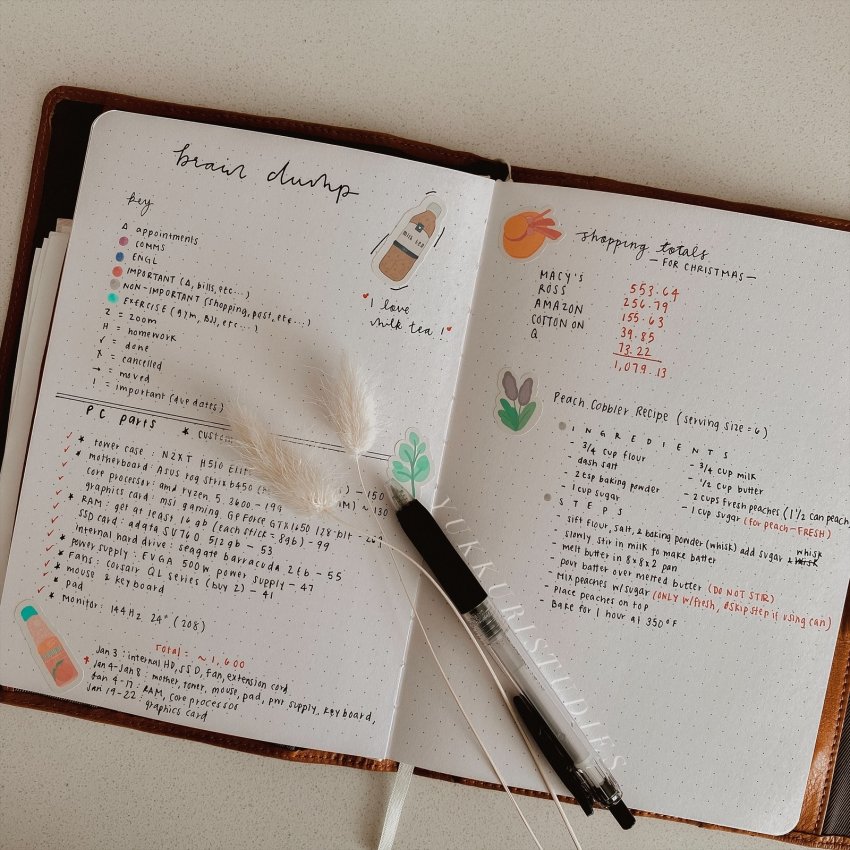 brain dump
key
Δ appointments
COMMS
ENGL
IMPORTANT (A, bills, etc...)
NON-IMPORTANT (shopping, post, etc...)
EXERCISE (gym, BJJ, etc...)
Z = zoom
H = homework
✓ = done
X = cancelled
→ = moved
! = important (due dates)
MILK TEA
♥ I love
milk tea! ♥
PC parts
✓ * tower case: NZXT H510 Elite
✓ * motherboard: Asus rog strix b450 ) - 150
✓ core processor: amd ryzen 5 3600 - 199 ) - 130
✓ graphics card: msi gaming GeForce GTX 1650 128-bit
✓ * RAM: get at least 16gb (each stick = 8gb) - 99
✓ SSD card: adata SU760 512gb - 53
✓ internal hard drive: seagate barracuda 2tb - 55
✓ * power supply: EVGA 500W power supply - 47
✓ * Fans: corsair QL series (buy 2) - 41
✓ * mouse & keyboard
✓ * pad
* monitor: 144Hz 24" (208)
Total: ~ 1,600
* Jan 3: internal HD, SSD, fan, extension cord
Jan 4-Jan 8: mother, tower, mouse, pad, pwr supply, keyboard,
Jan 9-17: RAM, core processor
Jan 19-22: graphics card
shopping totals
- FOR CHRISTMAS -
MACY'S 553.64
ROSS 256.79
AMAZON 155.63
COTTON ON 39.85
Q 73.22
1,079.13
Peach Cobbler Recipe (serving size = 6)
INGREDIENTS
- 3/4 cup flour - 3/4 cup milk
- dash salt - 1/2 cup butter
- 2 tsp baking powder - 2 cups fresh peaches (1 1/2 can peach
- 1 cup sugar - 1 cup sugar (for peach-FRESH)
STEPS
- sift flour, salt, & baking powder (whisk) add sugar & whisk
- slowly stir in milk to make batter
- melt butter in 8x8x2 pan
- pour batter over melted butter (DO NOT STIR)
- Mix peaches w/sugar (ONLY w/fresh, skip step if using can)
- Place peaches on top
- Bake for 1 hour at 350°F
YUKKURISTUDIES